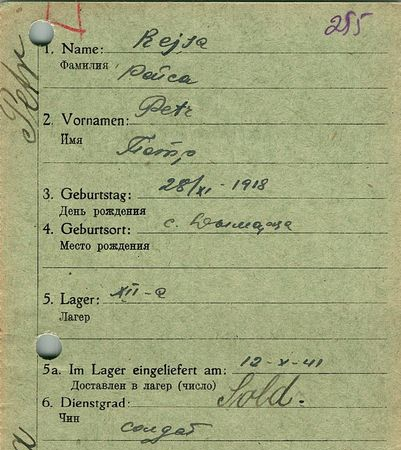 255
Petr
1. Name: Rejsa
Фамилия Райса
2. Vornamen: Petr
Имя Петр
3. Geburtstag: 28/XI - 1918
День рождения
4. Geburtsort: с. Дымарца
Место рождения
5. Lager: XII-a
Лагер
5a. Im Lager eingeliefert am: 12-X-41
Доставлен в лагер (число)
6. Dienstgrad: Sold.
Чин солдат